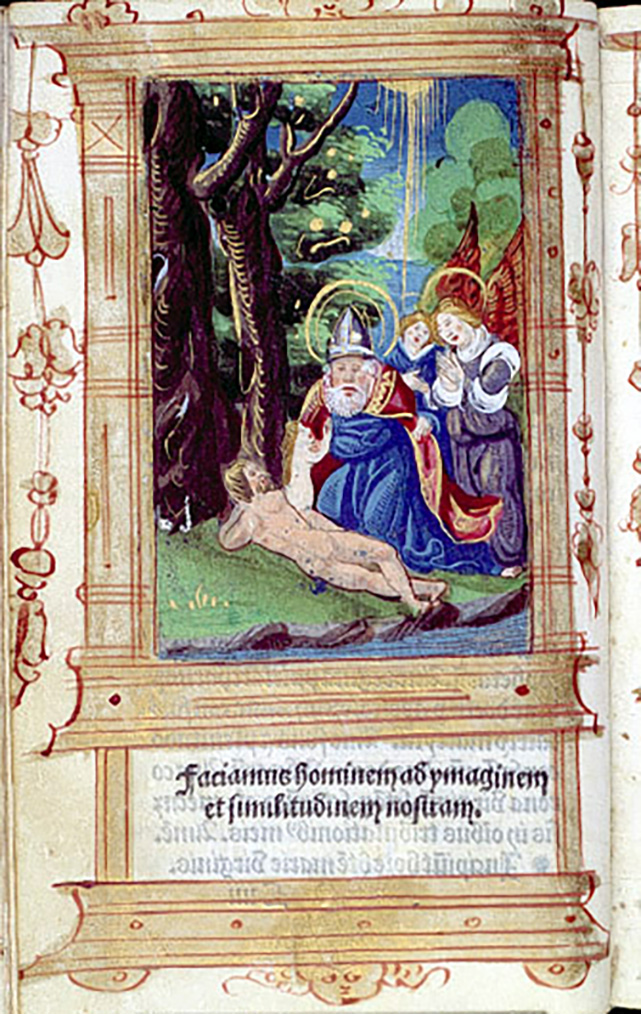 Faciamus hominem ad ymaginem
et similitudinem nostram.